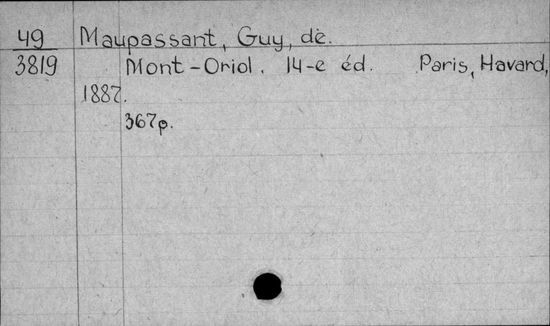 49 Maupassant, Guy, de.
3819 Mont-Oriol. 14-e éd. Paris, Havard,
1887.
367p.